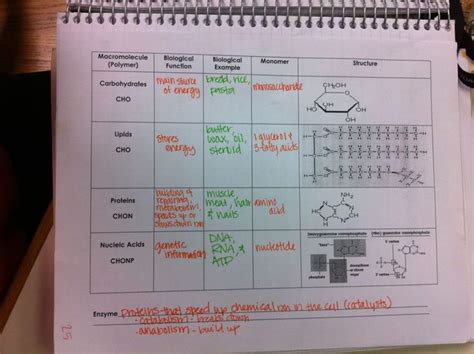 Macromolecule (Polymer) Biological Function Biological Example Monomer Structure
Carbohydrates
CHO
main source
of energy
bread, rice,
pasta
monosaccharide
CH₂OH
Lipids
CHO
stores
energy
butter,
wax, oil,
steroid
1 glycerol &
3 fatty acids
Proteins
CHON
building &
repairing,
metabolism
speeds up or
slows rxn
muscle,
meat, hair
& nails
amino
acid
NH₂
Nucleic Acids
CHONP
genetic
information
DNA,
RNA &
ATP
nucleotide
Enzyme proteins that speed up chemical rxn in the cell (catalysts)
· catabolism - breaks down
· anabolism - build up
25